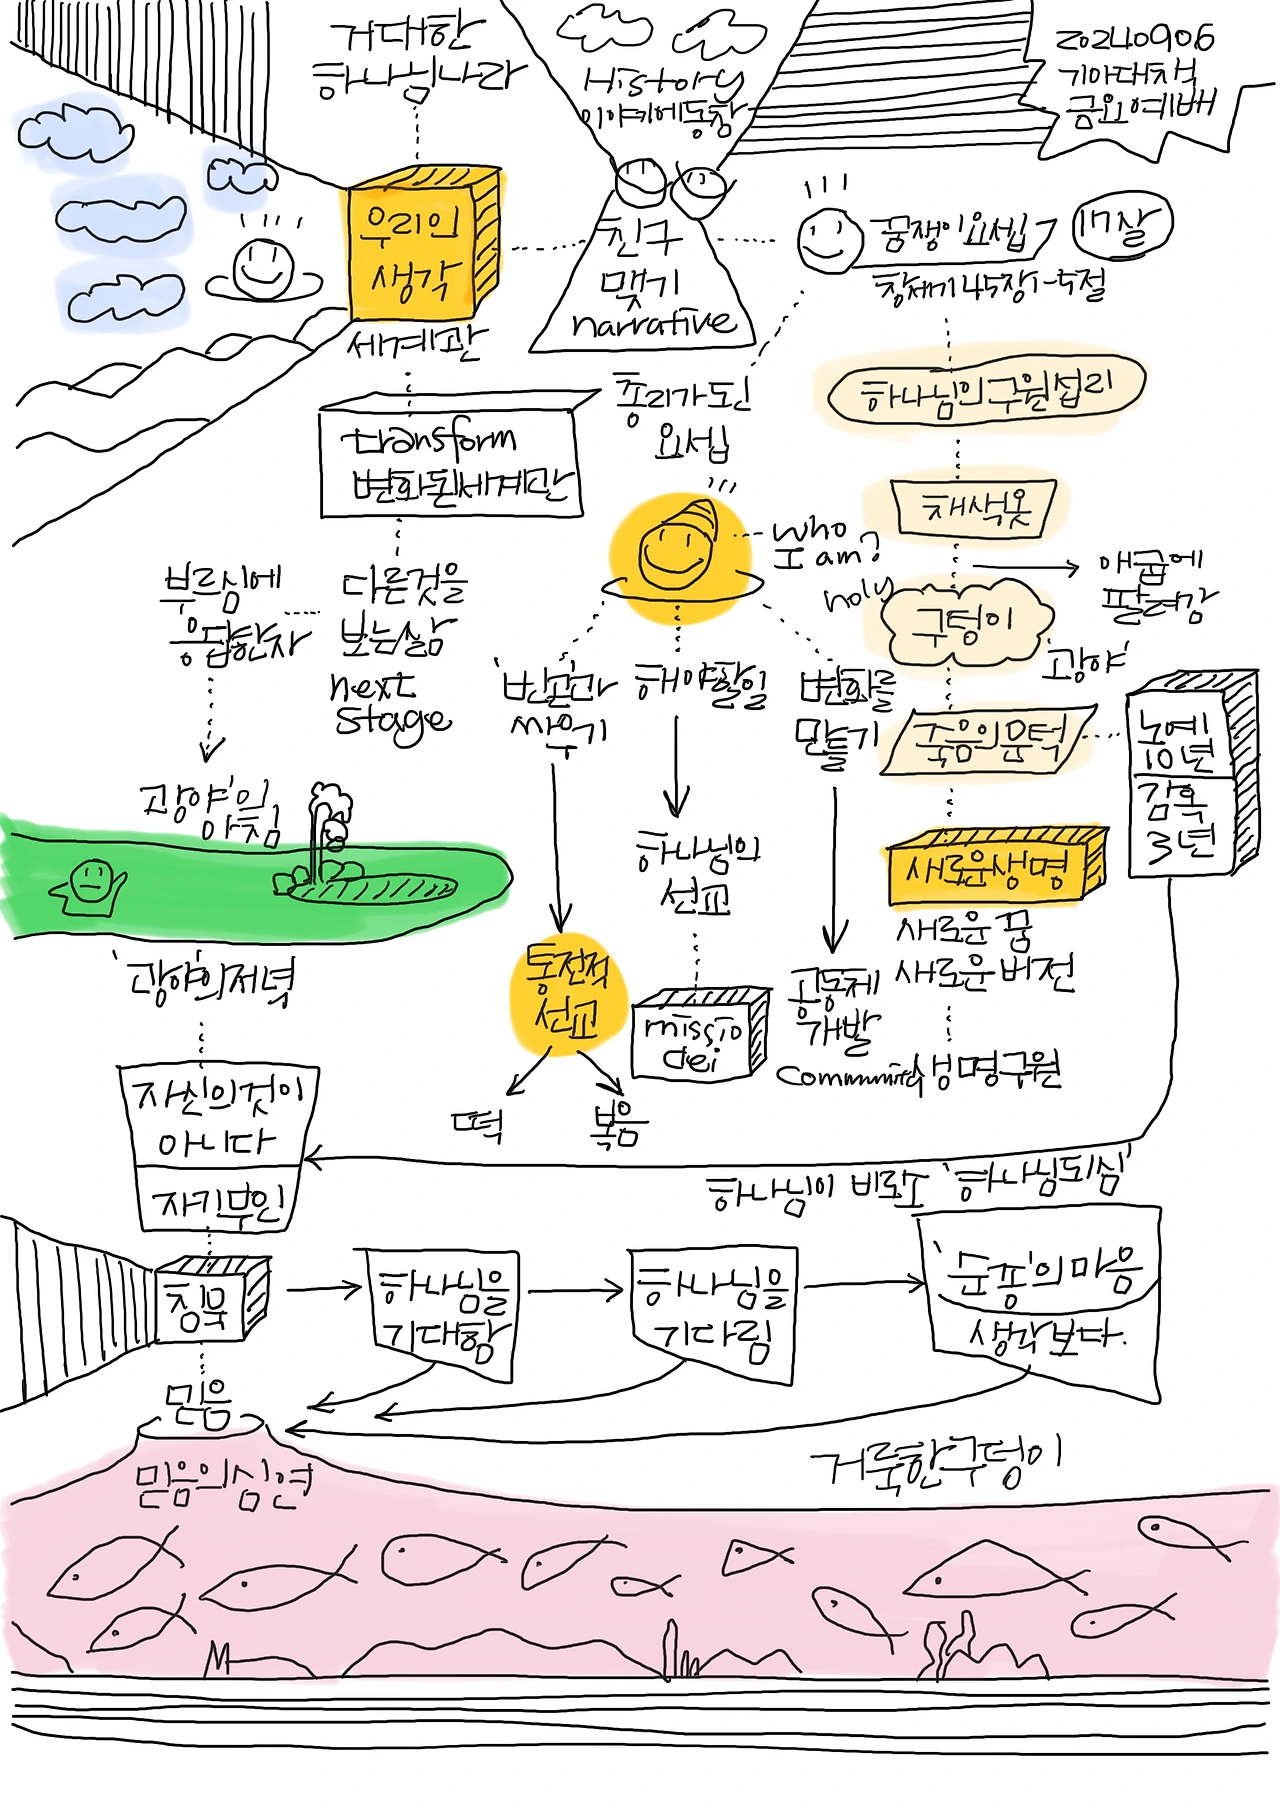 거대한
하나님나라
History
이야기에동참
20240906
기아대책
금요예배
우리의
생각
세계관
친구
맺기
narrative
꿈쟁이요셉
17살
창세기45장1-5절
하나님의구원섭리
transform
변화된세계관
총리가된
요셉
who
I am?
holy
채색옷
애굽에
팔려감
구덩이
'광야'
부르심에
응답한자
다른것을
보는삶
next
stage
'빈곤'과
싸우기
해야할일
변화를
만들기
죽음의문턱
노예
10년
감옥
3년
'광야'위
하나님의
선교
새로운생명
새로운 꿈
새로운비전
'광야'의저녁
통전적
선교
missio
dei
공동체
개발
community
생명구원
떡
복음
자신의것이
아니다
자기부인
하나님이 비로소 '하나님되심'
침묵
하나님을
기대함
하나님을
기다림
'순종'의마음
생각보다.
믿음
믿음의심연
거룩한구덩이